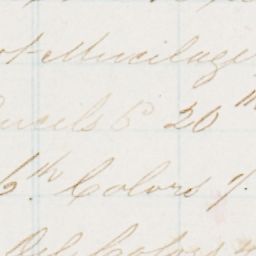 ot Mucilage
Pencils 6^d 20 th
6th Colors
Oil Colors